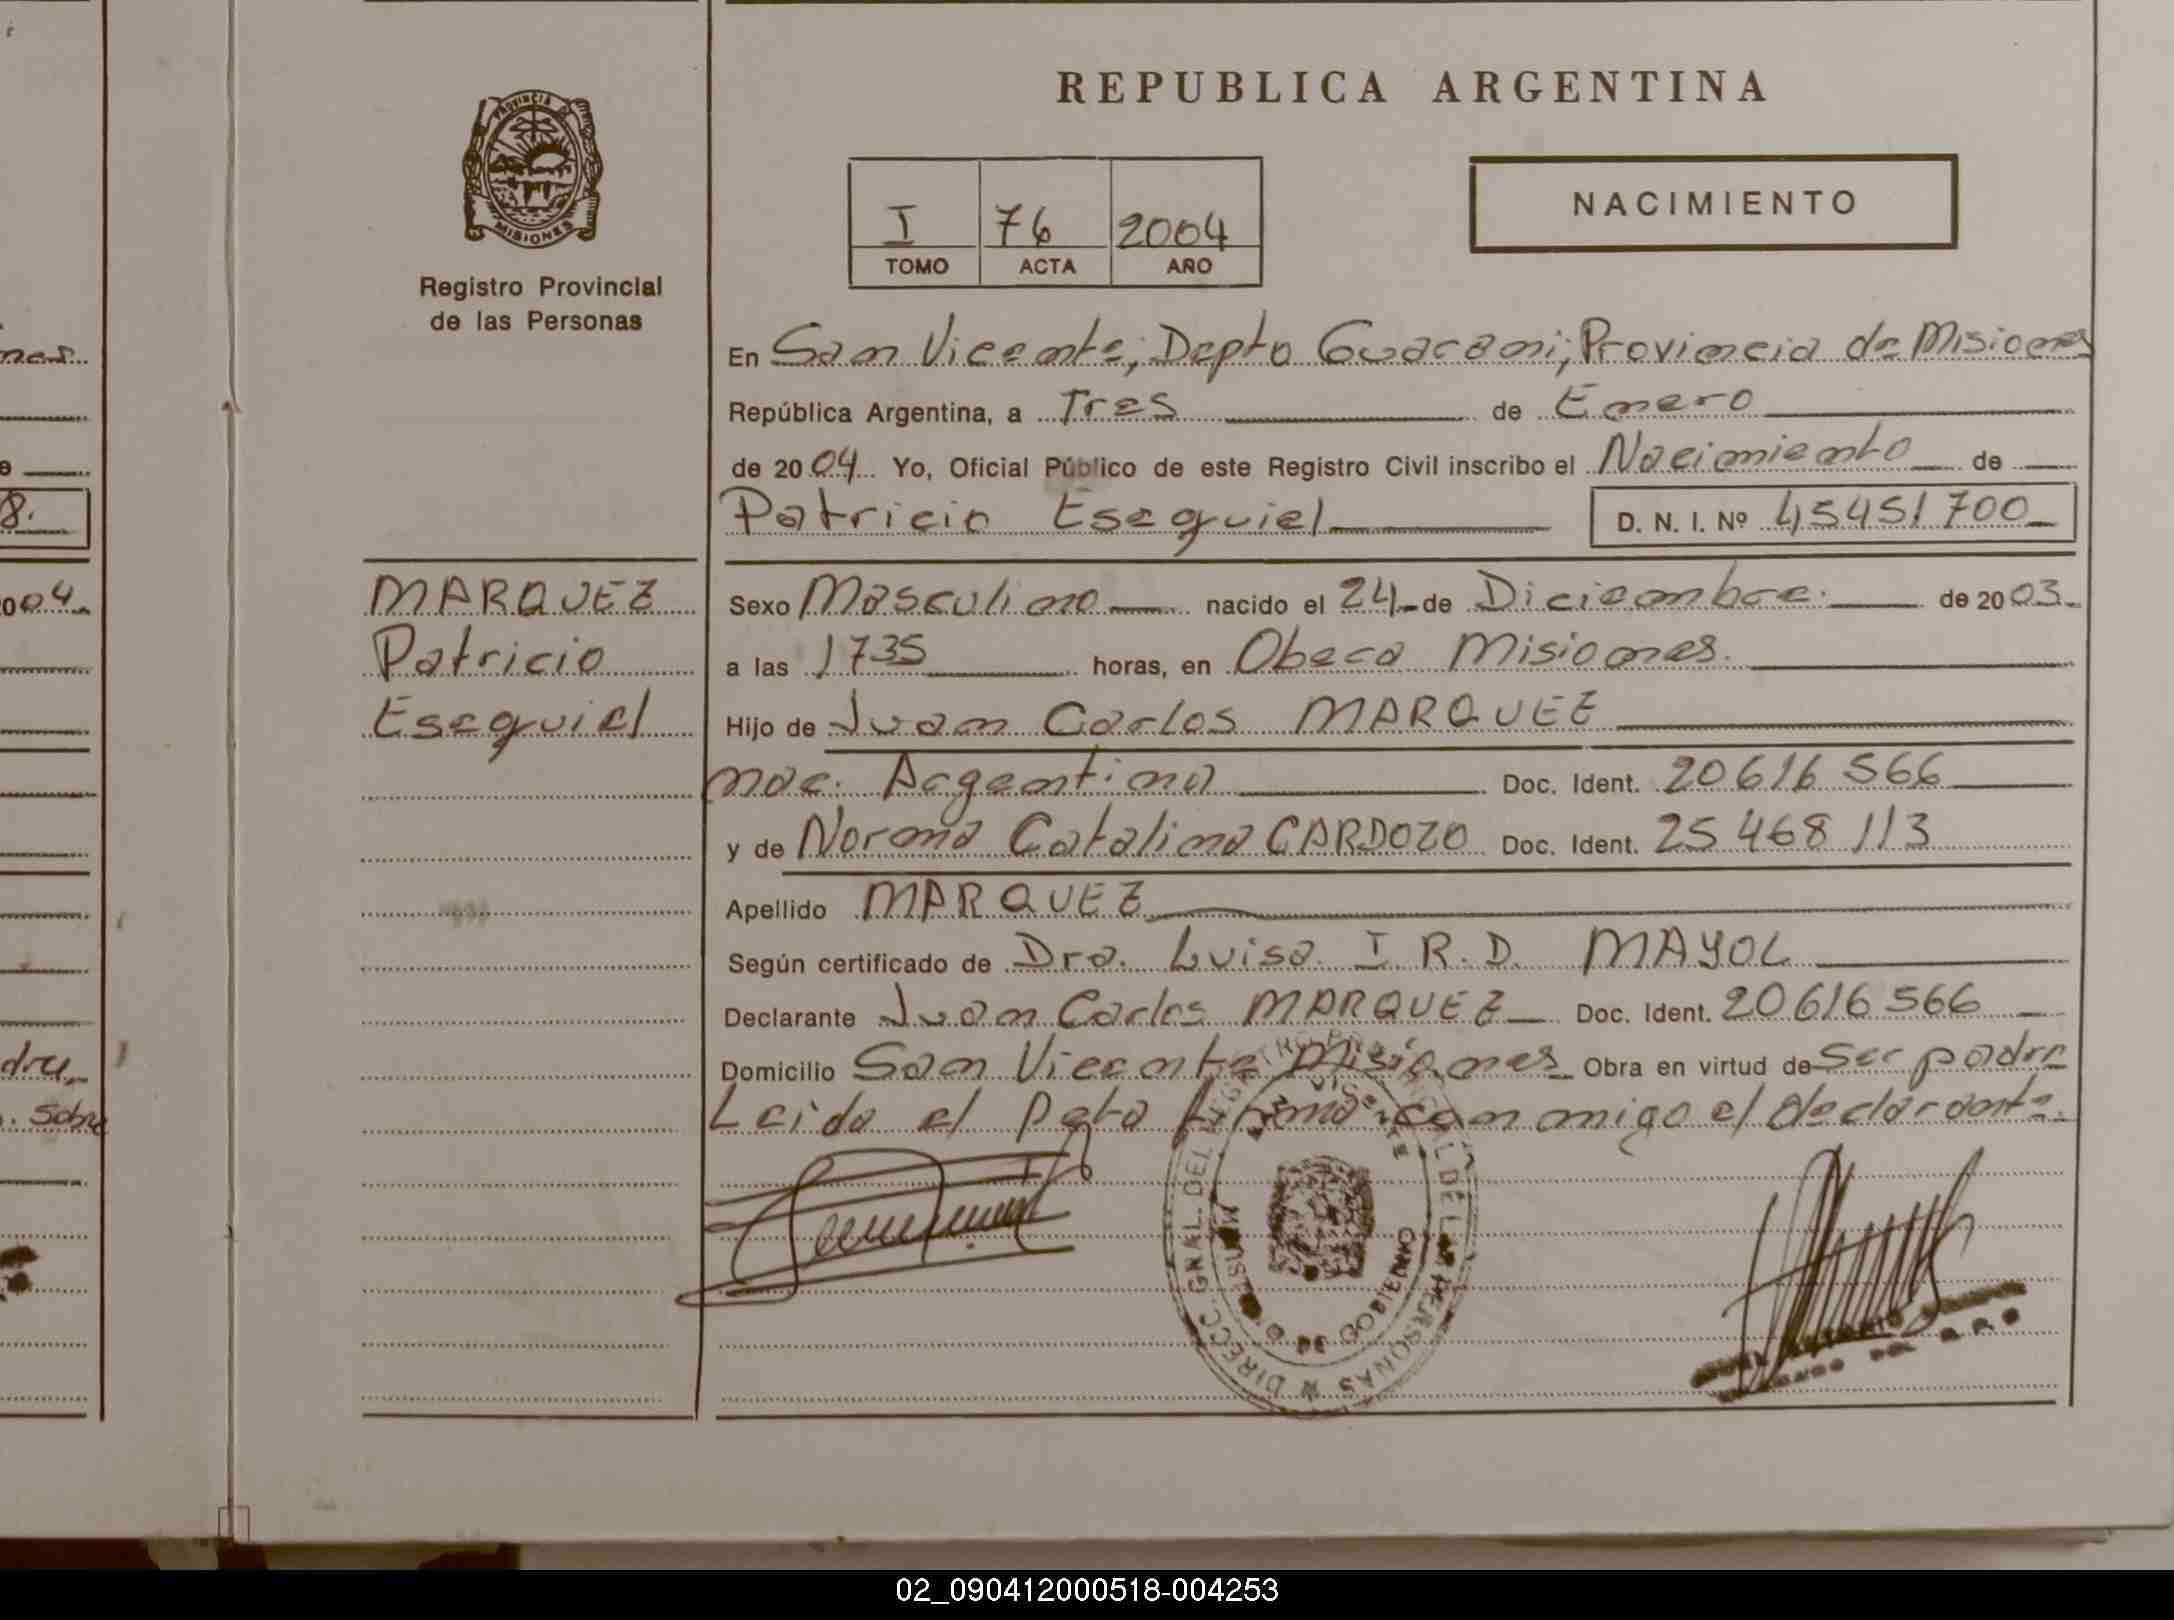 REPUBLICA ARGENTINA
PROVINCIA DE
MISIONES
Registro Provincial
de las Personas
I 76 2004
TOMO ACTA AÑO
NACIMIENTO
En San Vicente, Depto Guarani, Provincia de Misiones
República Argentina, a Tres de Enero
de 2004 Yo, Oficial Público de este Registro Civil inscribo el Nacimiento de
Patricio Esequiel D. N. I. Nº 45451700
MARQUEZ
Patricio
Esequiel
Sexo Masculino nacido el 24 de Diciembre. de 2003.
a las 1735 horas, en Obera Misiones.
Hijo de Juan Carlos MARQUEZ
nac. Argentina Doc. Ident. 20616566
y de Norma Catalina CARDOZO Doc. Ident. 25468113
Apellido MARQUEZ
Según certificado de Dra. Luisa I. R. D. MAYOL
Declarante Juan Carlos MARQUEZ Doc. Ident. 20616566
Domicilio San Vicente Misiones Obra en virtud de Ser padre
Leida el Acta firma conmigo el declarante.
DIRECC. GRAL. DEL REGISTRO PROVINCIAL DE LAS PERSONAS
DE GOBIERNO
nes
004
8.
dre
. sobre
02_090412000518-004253